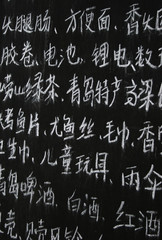 火腿肠、方便面、香
胶卷、电池、锂电、数
崂山绿茶、青岛特产高粱
烤鱼片、尤鱼丝、毛巾、香
卫生巾、儿童玩具、雨伞
青岛啤酒、白酒、红酒